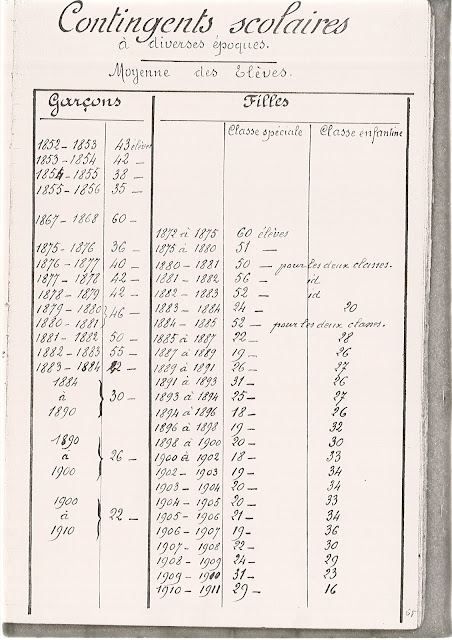 Contingents scolaires
à diverses époques.
Moyenne des Elèves.
Garçons
1852 - 1853 43 élèves
1853 - 1854 42 —
1854 - 1855 38 —
1855 - 1856 35 —
1867 - 1868 60 —
1875 - 1876 36 —
1876 - 1877 40 —
1877 - 1878 42 —
1878 - 1879 42 —
1879 - 1880
1880 - 1881 } 46 —
1881 - 1882 50 —
1882 - 1883 55 —
1883 - 1884 22 —
1884
à } 30 —
1890
1890
à } 26 —
1900
1900
à } 22 —
1910
Filles
Classe spéciale Classe enfantine
1872 à 1875 60 élèves
1875 à 1880 51 —
1880 - 1881 50 — pour les deux classes.
1881 - 1882 56 — id
1882 - 1883 52 — id
1883 - 1884 24 — 20
1884 - 1885 52 — pour les deux classes.
1885 à 1887 22 — 28
1887 à 1889 19 — 26
1889 à 1891 26 — 27
1891 à 1893 31 — 26
1893 à 1894 25 — 27
1894 à 1896 18 — 26
1896 à 1898 19 — 32
1898 à 1900 20 — 30
1900 à 1902 18 — 33
1902 - 1903 19 — 34
1903 - 1904 20 — 34
1904 - 1905 20 — 33
1905 - 1906 21 — 34
1906 - 1907 19 — 36
1907 - 1908 22 — 30
1908 - 1909 24 — 29
1909 - 1910 31 — 23
1910 - 1911 29 — 16